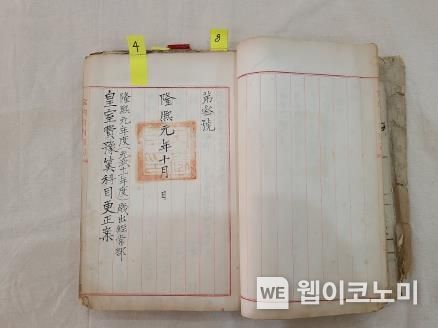 4
8
第叅號
隆熙元年十月 日
隆熙元年度(光武十一年度)歲出經常部
皇室費豫算科目更正案
WE 웹이코노미